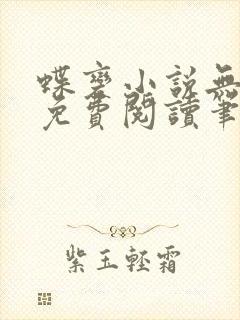 蝶變小說無
免費閱讀筆
紫玉輕霜